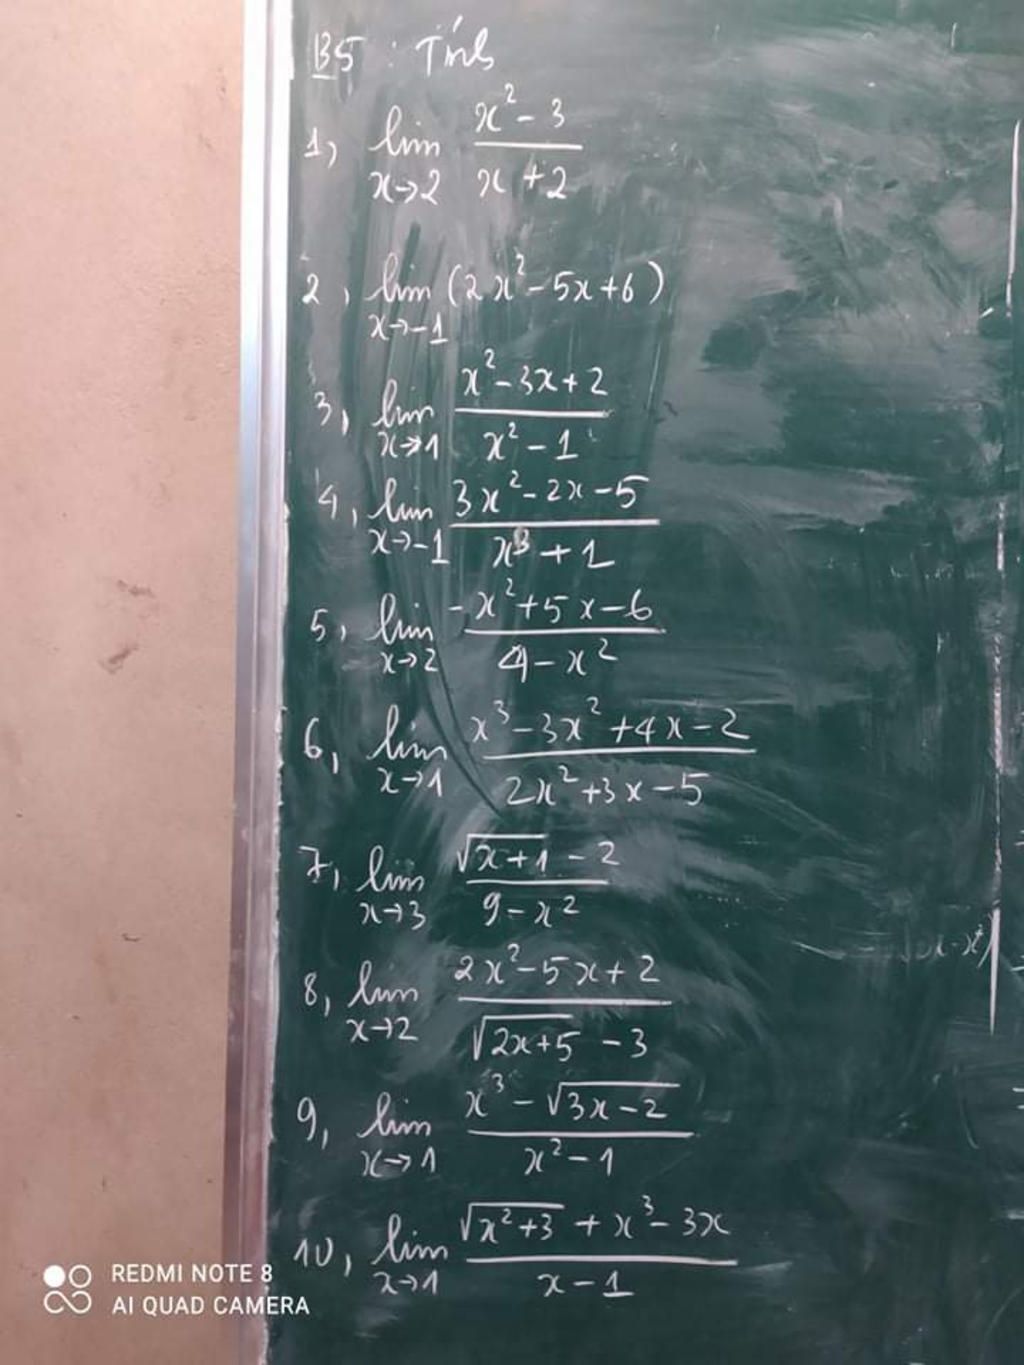 B5 : Tính
1, lim x→2 (x² - 3)/(x + 2)
2, lim x→-1 (2x² - 5x + 6)
3, lim x→1 (x² - 3x + 2)/(x² - 1)
4, lim x→-1 (3x² - 2x - 5)/(x³ + 1)
5, lim x→2 (-x² + 5x - 6)/(4 - x²)
6, lim x→1 (x³ - 3x² + 4x - 2)/(2x² + 3x - 5)
7, lim x→3 (√(x+1) - 2)/(9 - x²)
8, lim x→2 (2x² - 5x + 2)/(√(2x+5) - 3)
9, lim x→1 (x³ - √(3x-2))/(x² - 1)
10, lim x→1 (√(x²+3) + x³ - 3x)/(x - 1)
REDMI NOTE 8
AI QUAD CAMERA